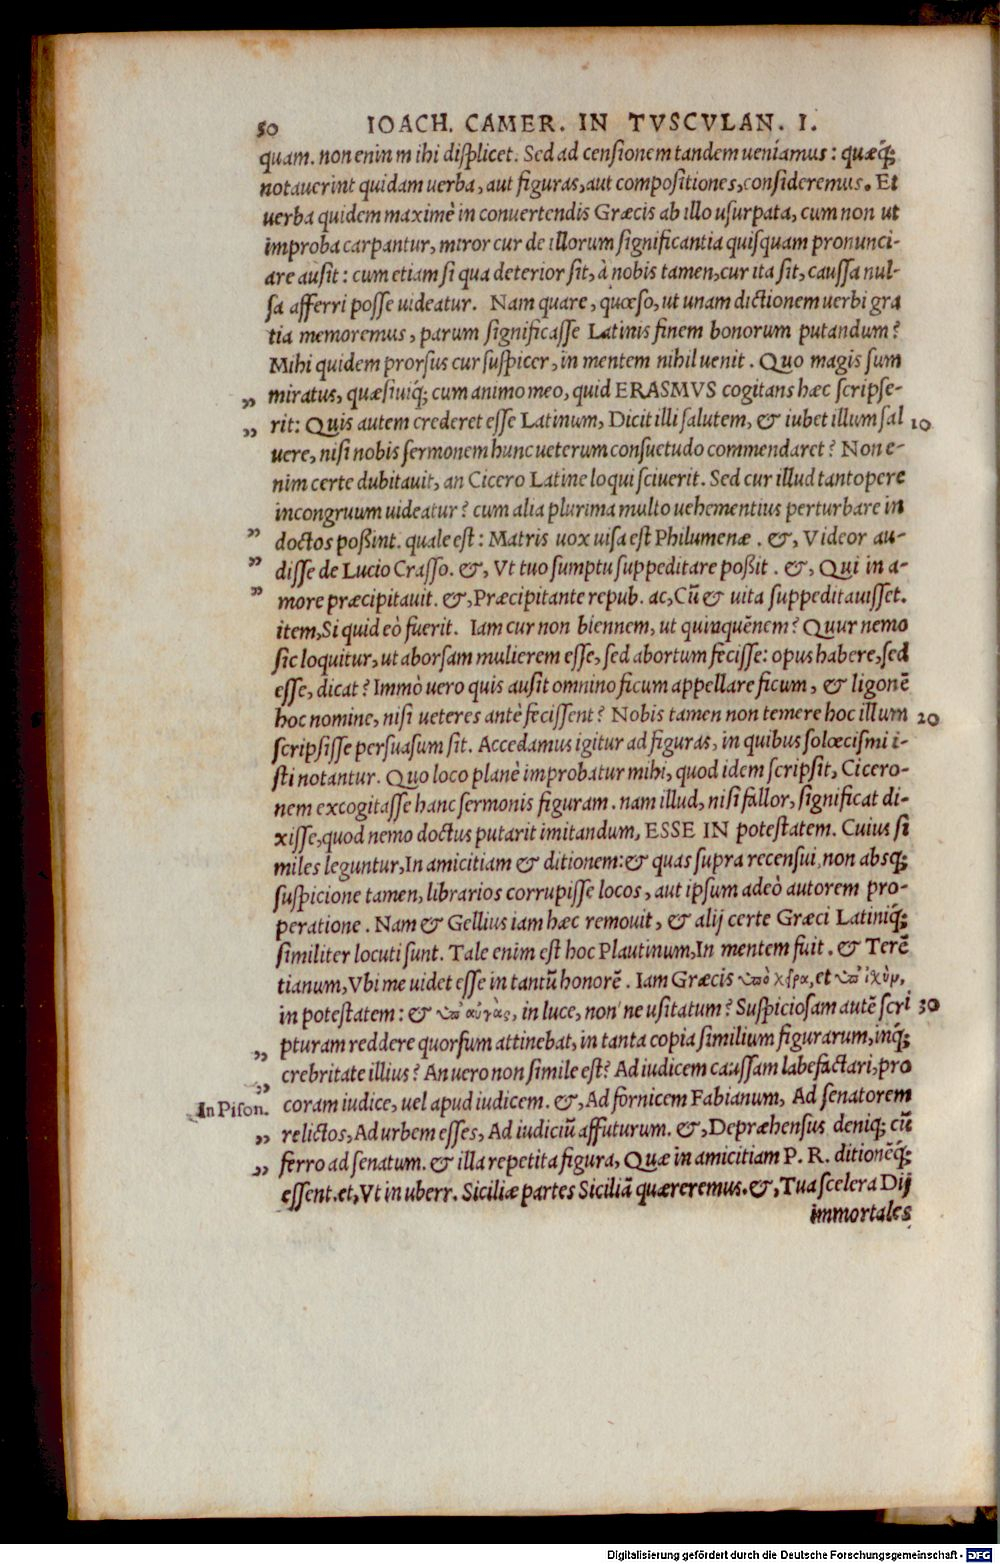 50 IOACH. CAMER. IN TVSCVLAN. I.
quam. non enin m ihi displicet. Sed ad censionem tandem ueniamus: quæq́;
notauerint quidam uerba, aut figuras, aut compositiones, consideremus. Et
uerba quidem maximè in conuertendis Græcis ab illo usurpata, cum non ut
improba carpantur, miror cur de illorum significantia quisquam pronunci-
are ausit: cum etiam si qua deterior sit, à nobis tamen, cur ita sit, caussa nul-
sa afferri posse uideatur. Nam quare, quæso, ut unam dictionem uerbi gra
tia memoremus, parum significasse Latinis finem bonorum putandum?
Mihi quidem prorsus cur suspicer, in mentem nihil uenit. Quo magis sum
„ miratus, quæsiuiq́; cum animo meo, quid ERASMVS cogitans hæc scripse-
„ rit: Quis autem crederet esse Latinum, Dicit illi salutem, & iubet illum sal 10
uere, nisi nobis sermonem hunc ueterum consuetudo commendaret? Non e-
nim certe dubitauit, an Cicero Latine loqui sciuerit. Sed cur illud tantopere
incongruum uideatur? cum alia plurima multo uehementius perturbare in
„ doctos poßint. quale est: Matris uox uisa est Philumenæ. &, Videor au-
„ disse de Lucio Crasso. &, Vt tuo sumptu suppeditare poßit. &, Qui in a-
„ more præcipitauit. &, Præcipitante repub. ac, Cũ & uita suppeditauisset.
item, Si quid eò fuerit. Iam cur non biennem, ut quinquẽnem? Quur nemo
sic loquitur, ut aborsam mulierem esse, sed abortum fecisse: opus habere, sed
esse, dicat? Immò uero quis ausit omnino ficum appellare ficum, & ligonẽ
hoc nomine, nisi ueteres antè fecissent? Nobis tamen non temere hoc illum 20
scripsisse persuasum sit. Accedamus igitur ad figuras, in quibus solœcismi i-
sti notantur. Quo loco planè improbatur mihi, quod idem scripsit, Cicero-
nem excogitasse hanc sermonis figuram. nam illud, nisi fallor, significat di-
xisse, quod nemo doctus putarit imitandum, ESSE IN potestatem. Cuius si
miles leguntur, In amicitiam & ditionem: & quas supra recensui, non absq;
suspicione tamen, librarios corrupisse locos, aut ipsum adeò autorem pro-
peratione. Nam & Gellius iam hæc remouit, & alij certe Græci Latiniq́;
similiter locuti sunt. Tale enim est hoc Plautinum, In mentem fuit. & Terẽ
tianum, Vbi me uidet esse in tantũ honorẽ. Iam Græcis ὑπὸ χεῖρα, et ὑπ᾽ ἰχὺν,
in potestatem: & ὑπ᾽ αὐγὰς, in luce, non'ne usitatum? Suspiciosam autẽ scri 30
„ pturam reddere quorsum attinebat, in tanta copia similium figurarum, inq́;
„ crebritate illius? An uero non simile est? Ad iudicem caussam labefactari, pro
In Pison. coram iudice, uel apud iudicem. &, Ad fornicem Fabianum, Ad senatorem
„ relictos, Ad urbem esses, Ad iudiciũ affuturum. &, Depræhensus deniq; cũ
„ ferro ad senatum. & illa repetita figura, Quæ in amicitiam P. R. ditionẽq́;
essent. et, Vt in uberr. Siciliæ partes Siciliã quæreremus. &, Tua scelera Dij
immortales
Digitalisierung gefördert durch die Deutsche Forschungsgemeinschaft - DFG